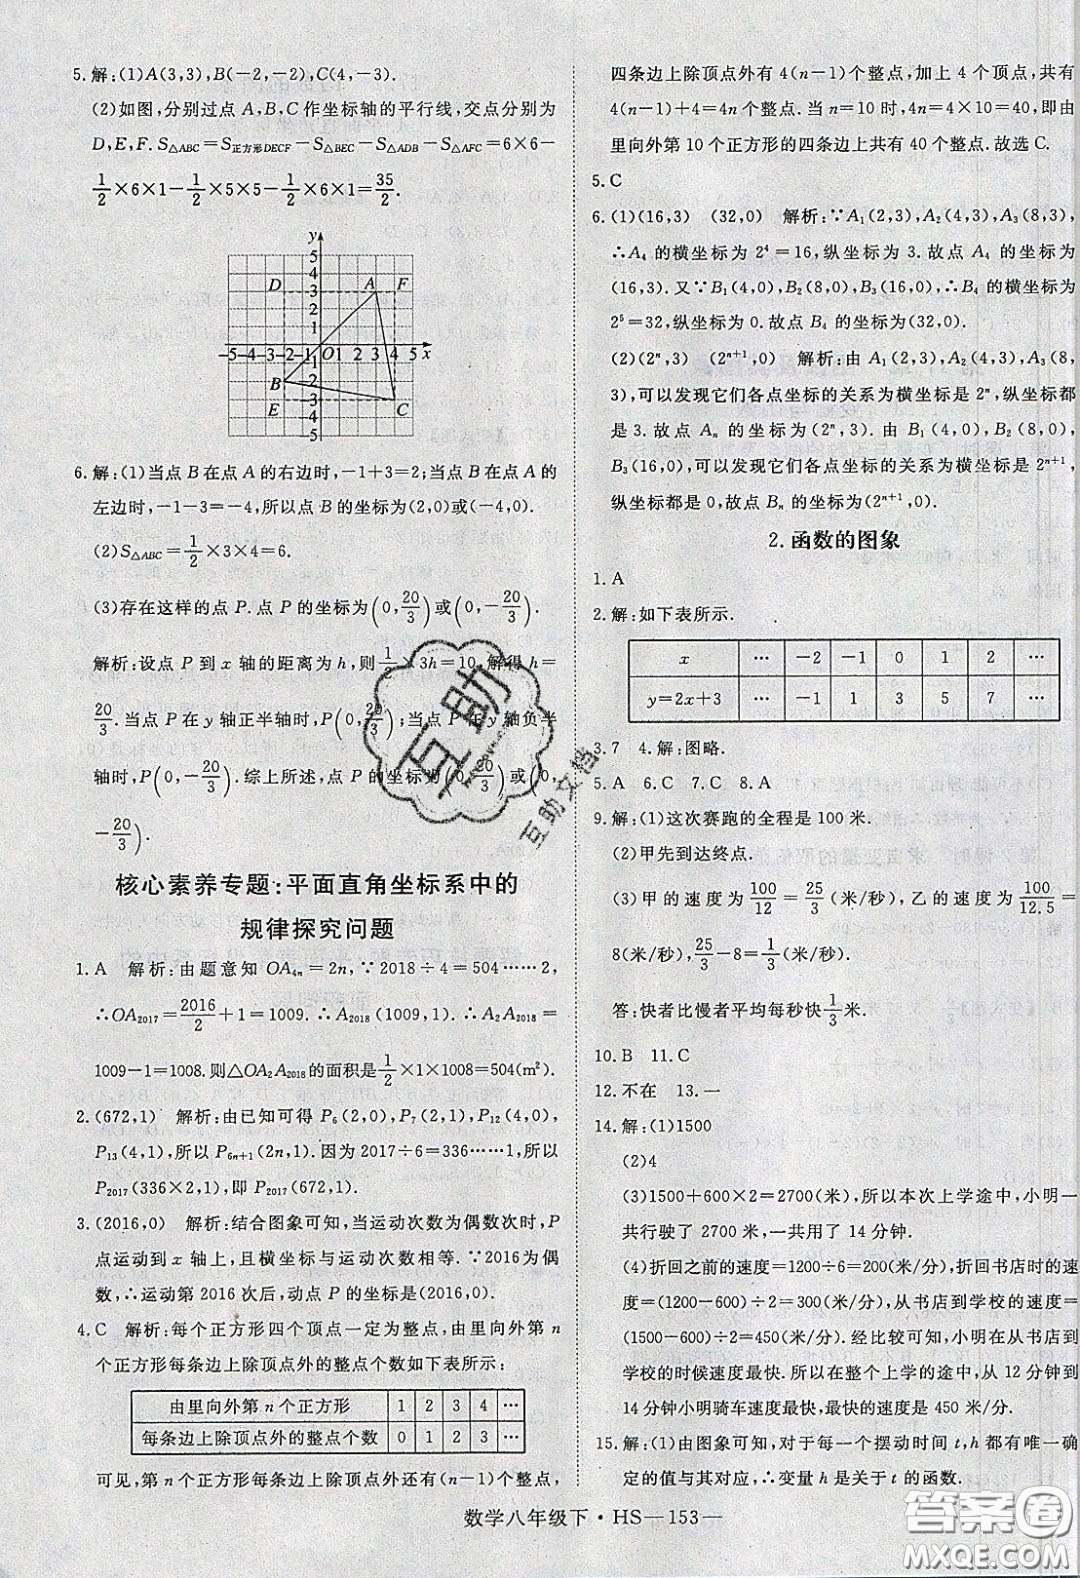 5.解:(1)A(3,3),B(-2,-2),C(4,-3).
(2)如图,分别过点 A,B,C 作坐标轴的平行线,交点分别为
D,E,F. S△ABC=S正方形DECF-S△BEC-S△ADB-S△AFC=6×6-
1/2×6×1-1/2×5×5-1/2×6×1=35/2.
y
5
4
D 3 A F
2
1
-5-4-3-2-1 O 1 2 3 4 5 x
-1
B -2
E -3 C
-4
-5
6.解:(1)当点 B 在点 A 的右边时,-1+3=2;当点 B 在点 A 的
左边时,-1-3=-4,所以点 B 的坐标为(2,0)或(-4,0).
(2)S△ABC=1/2×3×4=6.
(3)存在这样的点 P.点 P 的坐标为(0,20/3)或(0,-20/3).
解析:设点 P 到 x 轴的距离为 h,则1/2×3h=10,解得 h=
20/3.当点 P 在 y 轴正半轴时,P(0,20/3);当点 P 在 y 轴负半
轴时,P(0,-20/3).综上所述,点 P 的坐标为(0,20/3)或(0,
-20/3).
核心素养专题:平面直角坐标系中的
规律探究问题
1.A 解析:由题意知 OA4n=2n,∵2018÷4=504……2,
∴OA2017=2016/2+1=1009.∴A2018(1009,1).∴A2A2018=
1009-1=1008.则△OA2A2018的面积是1/2×1×1008=504(m²).
2.(672,1) 解析:由已知可得 P6(2,0),P7(2,1),P12(4,0),
P13(4,1),所以 P6n+1(2n,1).因为 2017÷6=336……1,所以
P2017(336×2,1),即 P2017(672,1).
3.(2016,0) 解析:结合图象可知,当运动次数为偶数次时,P
点运动到 x 轴上,且横坐标与运动次数相等.∵2016为偶
数,∴运动第 2016 次后,动点 P 的坐标是(2016,0).
4.C 解析:每个正方形四个顶点一定为整点,由里向外第 n
个正方形每条边上除顶点外的整点个数如下表所示:
由里向外第 n 个正方形 1 2 3 4 …
每条边上除顶点外的整点个数 0 1 2 3 …
可见,第 n 个正方形每条边上除顶点外还有(n-1)个整点,
四条边上除顶点外有 4(n-1)个整点,加上 4 个顶点,共有
4(n-1)+4=4n 个整点.当 n=10 时,4n=4×10=40,即由
里向外第 10 个正方形的四条边上共有 40 个整点.故选 C.
5.C
6.(1)(16,3) (32,0) 解析:∵A1(2,3),A2(4,3),A3(8,3),
∴A4 的横坐标为 2⁴=16,纵坐标为 3.故点 A4 的坐标为
(16,3).又∵B1(4,0),B2(8,0),B3(16,0),∴B4 的横坐标为
2⁵=32,纵坐标为 0.故点 B4 的坐标为(32,0).
(2)(2ⁿ,3) (2ⁿ⁺¹,0) 解析:由 A1(2,3),A2(4,3),A3(8,
3),可以发现它们各点坐标的关系为横坐标是 2ⁿ,纵坐标都
是 3.故点 An 的坐标为(2ⁿ,3).由 B1(4,0),B2(8,0),
B3(16,0),可以发现它们各点坐标的关系为横坐标是 2ⁿ⁺¹,
纵坐标都是 0,故点 Bn 的坐标为(2ⁿ⁺¹,0).
2.函数的图象
1.A
2.解:如下表所示.
x … -2 -1 0 1 2 …
y=2x+3 … -1 1 3 5 7 …
3.7 4.解:图略.
5.A 6.C 7.C 8.A
9.解:(1)这次赛跑的全程是 100 米.
(2)甲先到达终点.
(3)甲的速度为100/12=25/3(米/秒),乙的速度为100/12.5=
8(米/秒),25/3-8=1/3(米/秒).
答:快者比慢者平均每秒快1/3米.
10.B 11.C
12.不在 13.一
14.解:(1)1500
(2)4
(3)1500+600×2=2700(米),所以本次上学途中,小明一
共行驶了 2700 米,一共用了 14 分钟.
(4)折回之前的速度=1200÷6=200(米/分),折回书店时的速
度=(1200-600)÷2=300(米/分),从书店到学校的速度=
(1500-600)÷2=450(米/分).经过比较,小明在从书店到
学校的时候速度最快.所以在整个上学的途中,从 12 分钟到
14 分钟小明骑车速度最快,最快的速度是 450 米/分.
15.解:(1)由图象可知,对于每一个摆动时间 t,h 都有唯一确
定的值与其对应,∴变量 h 是关于 t 的函数.
数学八年级下·HS—153—
互助
互助文档
答案圈
MXQE.COM